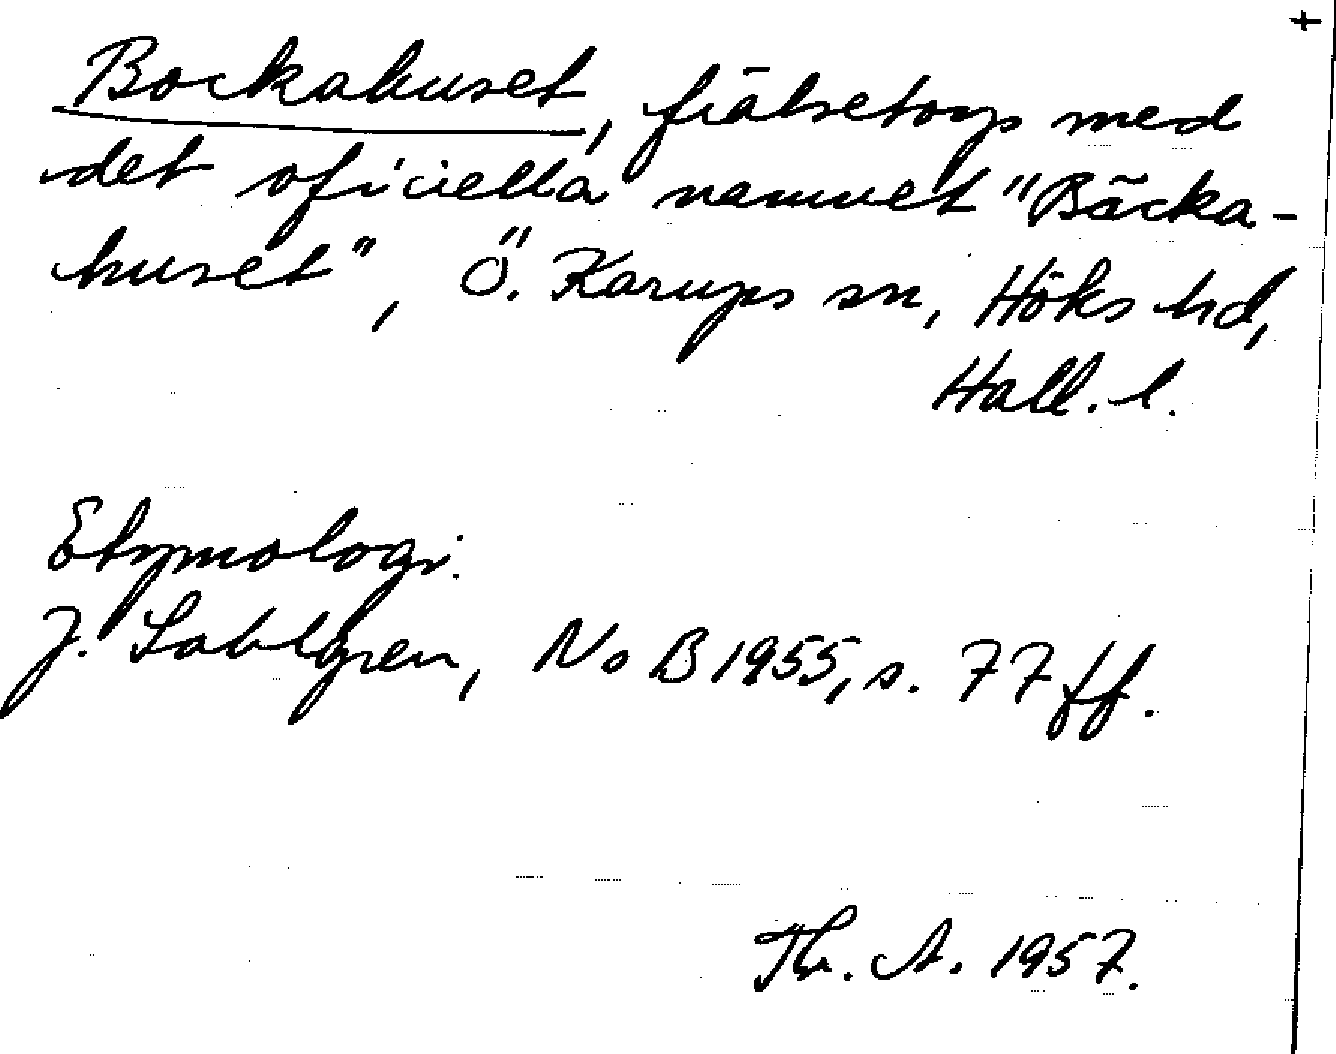 +
Bockahuset, frälsetorp med
det oficiella namnet "Bäcka-
huset", Ö. Karups sn, Höks hd,
Hall. l.
Etymologi.
J. Sahlgren, NoB 1955, s. 77 ff.
Th. A. 1957.